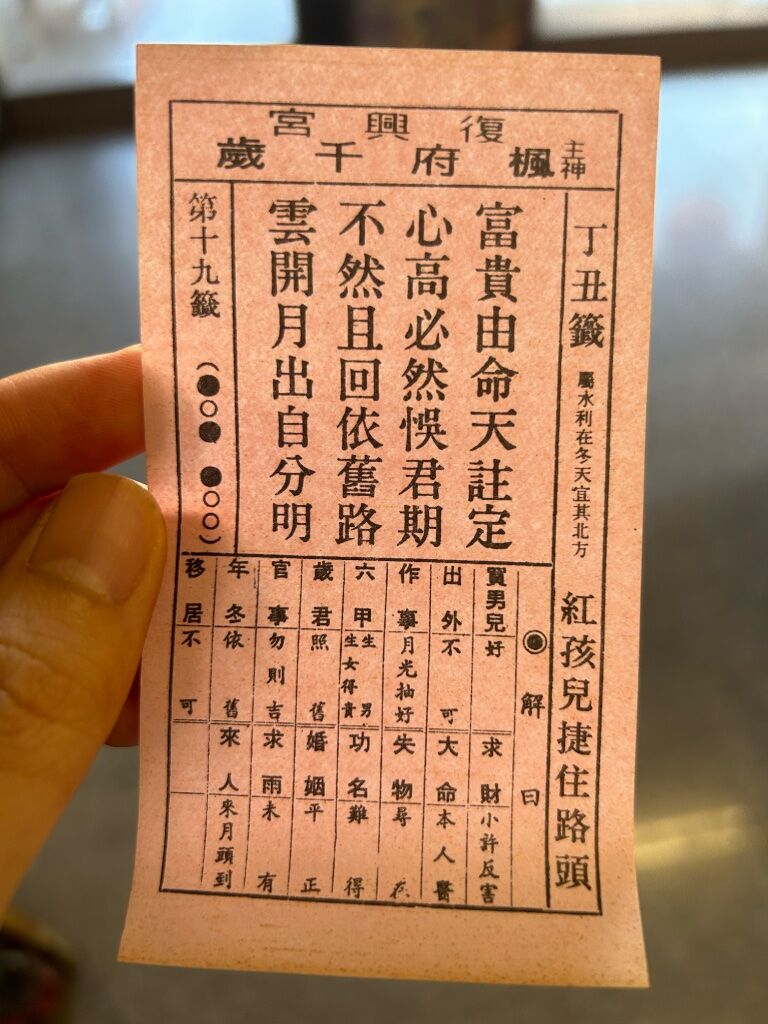 復興宮
主神 楓府千歲
丁丑籤 屬水利在冬天宜其北方 紅孩兒捷住路頭
富貴由命天註定
心高必然悞君期
不然且回依舊路
雲開月出自分明
第十九籤 (●○● ●○○)
◉解曰
買男兒 好 求財 小許反害
出外 不可 大命 本人醫
作事 月光抽好 失物 尋在
六甲 生男生女得貴 功名 難得
歲君 照舊 婚姻 平正
官事 勿則吉 求雨 未有
年冬 依舊 來人 來月頭到
移居 不可